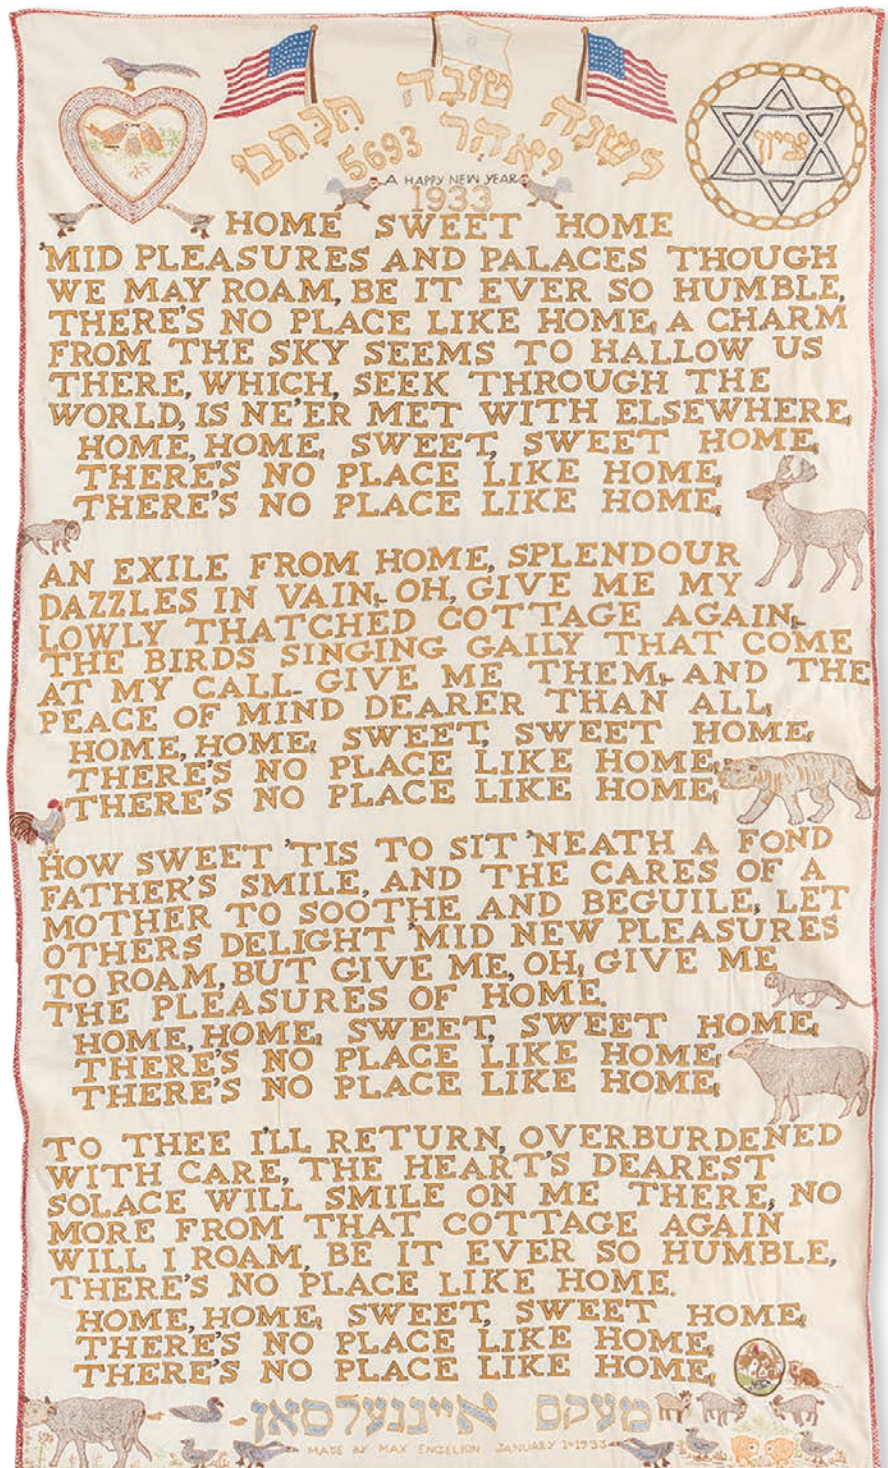 לשנה טובה תכתבו
יאָהר 5693
ציון
A HAPPY NEW YEAR
1933
HOME SWEET HOME
'MID PLEASURES AND PALACES THOUGH
WE MAY ROAM, BE IT EVER SO HUMBLE,
THERE'S NO PLACE LIKE HOME, A CHARM
FROM THE SKY SEEMS TO HALLOW US
THERE, WHICH, SEEK THROUGH THE
WORLD, IS NE'ER MET WITH ELSEWHERE,
HOME, HOME, SWEET, SWEET HOME,
THERE'S NO PLACE LIKE HOME,
THERE'S NO PLACE LIKE HOME,
AN EXILE FROM HOME, SPLENDOUR
DAZZLES IN VAIN, OH, GIVE ME MY
LOWLY THATCHED COTTAGE AGAIN,
THE BIRDS SINGING GAILY THAT COME
AT MY CALL- GIVE ME THEM, AND THE
PEACE OF MIND DEARER THAN ALL,
HOME, HOME, SWEET, SWEET HOME,
THERE'S NO PLACE LIKE HOME,
THERE'S NO PLACE LIKE HOME,
HOW SWEET 'TIS TO SIT 'NEATH A FOND
FATHER'S SMILE, AND THE CARES OF A
MOTHER TO SOOTHE AND BEGUILE, LET
OTHERS DELIGHT 'MID NEW PLEASURES
TO ROAM, BUT GIVE ME, OH, GIVE ME
THE PLEASURES OF HOME.
HOME, HOME, SWEET, SWEET HOME,
THERE'S NO PLACE LIKE HOME,
THERE'S NO PLACE LIKE HOME,
TO THEE I'LL RETURN, OVERBURDENED
WITH CARE, THE HEART'S DEAREST
SOLACE WILL SMILE ON ME THERE, NO
MORE FROM THAT COTTAGE AGAIN
WILL I ROAM, BE IT EVER SO HUMBLE,
THERE'S NO PLACE LIKE HOME.
HOME, HOME, SWEET, SWEET HOME,
THERE'S NO PLACE LIKE HOME,
THERE'S NO PLACE LIKE HOME,
מעקס איינגעלסאן
MADE BY MAX ENGELSON JANUARY 1=1933